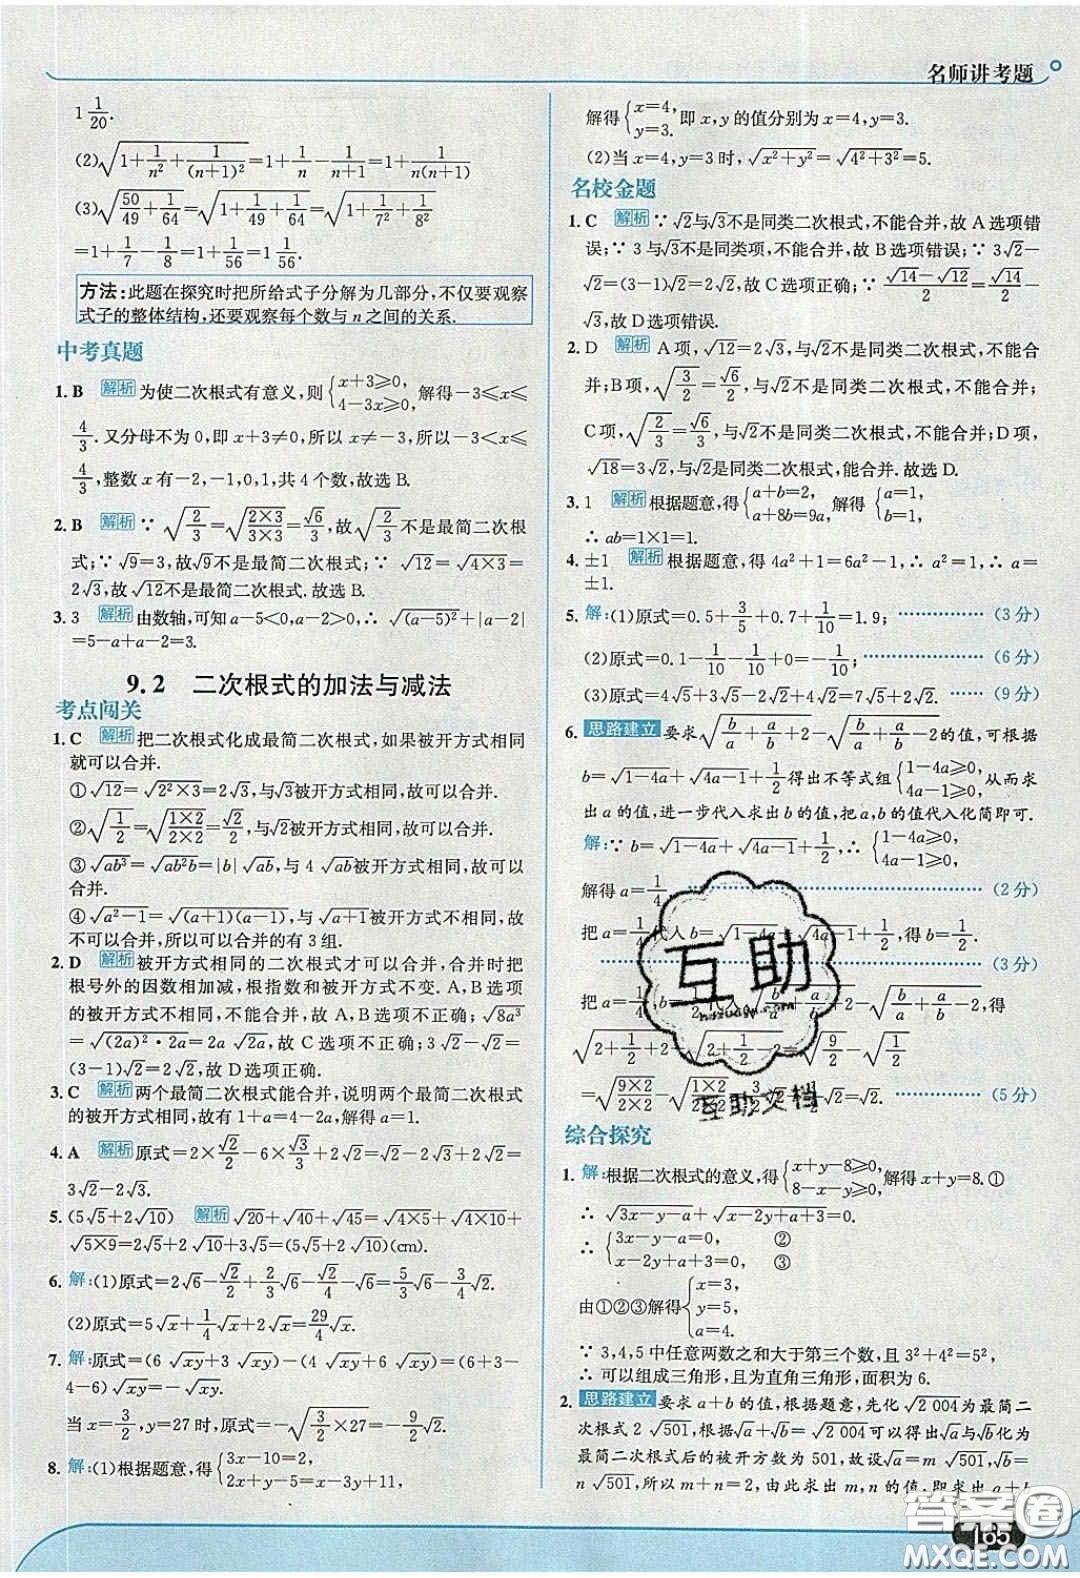 名师讲考题
1 1/20.
(2)√(1+1/n²+1/(n+1)²)=1+1/n-1/(n+1)=1+1/(n(n+1))
(3)√(50/49+1/64)=√(1+1/49+1/64)=√(1+1/7²+1/8²)
=1+1/7-1/8=1+1/56=1 1/56.
方法:此题在探究时把所给式子分解为几部分,不仅要观察
式子的整体结构,还要观察每个数与 n 之间的关系.
中考真题
1. B 解析 为使二次根式有意义,则{x+3⩾0, 4-3x⩾0, 解得-3⩽x⩽
4/3. 又分母不为 0,即 x+3≠0,所以 x≠-3,所以-3<x⩽
4/3,整数 x 有-2,-1,0,1,共 4 个数,故选 B.
2. B 解析 ∵ √(2/3)=√((2×3)/(3×3))=√6/3,故√(2/3)不是最简二次根
式;∵ √9=3,故√9不是最简二次根式;∵ √12=√(4×3)=
2√3,故√12不是最简二次根式. 故选 B.
3. 3 解析 由数轴,可知 a-5<0,a-2>0,∴ √((a-5)²)+|a-2|
=5-a+a-2=3.
9.2 二次根式的加法与减法
考点闯关
1. C 解析 把二次根式化成最简二次根式,如果被开方式相同
就可以合并.
①√12=√(2²×3)=2√3,与√3被开方式相同,故可以合并;
②√(1/2)=√((1×2)/(2×2))=√2/2,与√2被开方式相同,故可以合并;
③√(ab³)=√(ab²b)=|b|√(ab),与 4√(ab)被开方式相同,故可以
合并;
④√(a²-1)=√((a+1)(a-1)),与√(a+1)被开方式不相同,故
不可以合并,所以可以合并的有 3 组.
2. D 解析 被开方式相同的二次根式才可以合并,合并时把
根号外的因数相加减,根指数和被开方式不变. A,B 选项
的被开方式不相同,不能合并,故 A,B 选项不正确;√(8a³)
=√((2a)²·2a)=2a√(2a),故 C 选项不正确;3√2-√2=
(3-1)√2=2√2,故选 D.
3. C 解析 两个最简二次根式能合并,说明两个二次根式
的被开方式相同,故有 1+a=4-2a,解得 a=1.
4. A 解析 原式=2×√2/2-6×√3/3+2√2=√2-2√3+2√2=
3√2-2√3.
5. (5√5+2√10) 解析 √20+√40+√45=√(4×5)+√(4×10)+
√(5×9)=2√5+2√10+3√5=(5√5+2√10)(cm).
6. 解:(1)原式=2√6-√2/2+2/3√6-√2/4-√6=5/3√6-3/4√2.
(2)原式=5√x+1/4√x+2√x=29/4√x.
7. 解:原式=(6√(xy)+3√(xy))-(4√(xy)+6√(xy))=(6+3-
4-6)√(xy)=-√(xy).
当 x=3/2,y=27 时,原式=-√(3/2×27)=-9/2√2.
8. 解:(1)根据题意,得{3x-10=2, 2x+y-5=x-3y+11,
解得{x=4, y=3. 即 x,y 的值分别为 x=4,y=3.
(2)当 x=4,y=3 时,√(x²+y²)=√(4²+3²)=5.
名校金题
1. C 解析 ∵ √2与√3不是同类二次根式,不能合并,故 A 选项错
误;∵ 3 与√3不是同类项,不能合并,故 B 选项错误;∵ 3√2-
√2=(3-1)√2=2√2,故 C 选项正确;∵ (√14-√12)/2=√14/2-
√3,故 D 选项错误.
2. D 解析 A 项,√12=2√3,与√2不是同类二次根式,不能合
并;B 项,√(3/2)=√6/2,与√2不是同类二次根式,不能合并;
C 项,√(2/3)=√6/3,与√2不是同类二次根式,不能合并;D 项,
√18=3√2,与√2是同类二次根式,能合并. 故选 D.
3. 1 解析 根据题意,得{a+b=2, a+8b=9a, 解得{a=1, b=1,
∴ ab=1×1=1.
4. ±1 解析 根据题意,得 4a²+1=6a²-1,∴ a²=1,∴ a=
±1.
5. 解:(1)原式=0.5+3/5+0.7+1/10=1.9; (3 分)
(2)原式=0.1-1/10-1/10=-1/10; (6 分)
(3)原式=4√5+3√5-2√2+4√2=7√5+2√2. (9 分)
6. 思路建立 要求√(b/a+a/b+2)-√(b/a+a/b-2)的值,可根据
b=√(1-4a)+√(4a-1)+1/2得出不等式组{1-4a⩾0, 4a-1⩾0, 从而求
出 a 的值,进一步代入求出 b 的值,把 a,b 的值代入化简即可.
解:∵ b=√(1-4a)+√(4a-1)+1/2,∴ {1-4a⩾0, 4a-1⩾0,
解得 a=1/4, (2 分)
把 a=1/4代入 b=√(1-4a)+√(4a-1)+1/2,得 b=1/2.
(3 分)
把 a=1/4,b=1/2代入√(b/a+a/b+2)-√(b/a+a/b-2),得
√(2+1/2+2)-√(2+1/2-2)=√(9/2)-√(1/2)
=√((9×2)/(2×2))-√((1×2)/(2×2))=3/2√2-√2/2=√2. (5 分)
综合探究
1. 解:根据二次根式的意义,得{x+y-8⩾0, 8-x-y⩾0, 解得 x+y=8. ①
∴ √(3x-y-a)+√(x-2y+a+3)=0.
∴ {3x-y-a=0, ② x-2y+a+3=0, ③
由①②③解得{x=3, y=5, a=4.
∵ 3,4,5 中任意两数之和大于第三个数,且 3²+4²=5²
∴ 可以组成三角形,且为直角三角形,面积为 6.
2. 思路建立 要求 a+b 的值,根据题意,先化√2 004为最简二
次根式 2√501,根据√a+√b=√2 004可以得出√a与√b化为
最简二次根式后的被开方数为 501,故设√a=m√501,√b=
n√501,所以 m+n=2,由此求出 m,n 的值,即可求出 a+b
互助
互助文档
答案圈
MXQE.COM
165